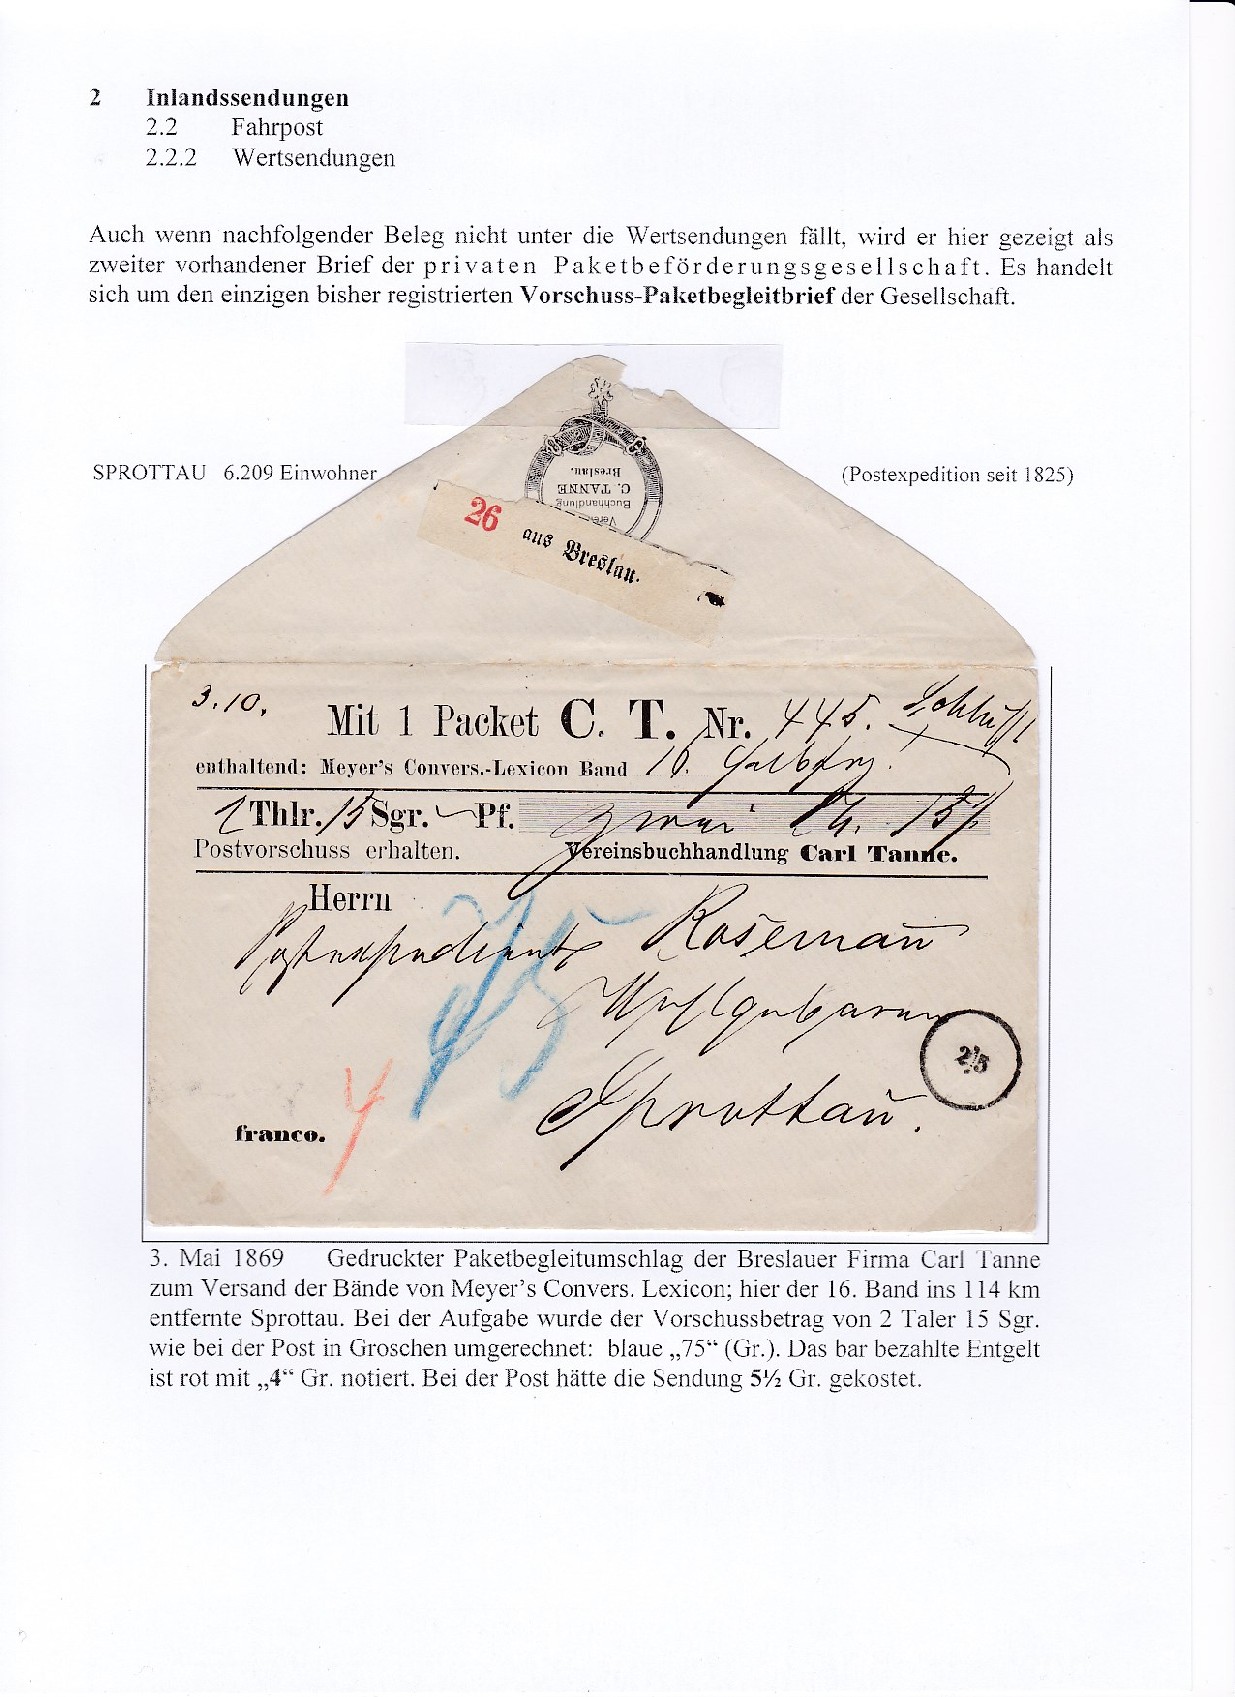 2 Inlandssendungen
2.2 Fahrpost
2.2.2 Wertsendungen
Auch wenn nachfolgender Beleg nicht unter die Wertsendungen fällt, wird er hier gezeigt als
zweiter vorhandener Brief der privaten Paketbeförderungsgesellschaft. Es handelt
sich um den einzigen bisher registrierten Vorschuss-Paketbegleitbrief der Gesellschaft.
SPROTTAU 6.209 Einwohner
(Postexpedition seit 1825)
Breslau.
C. TANNE
Buchhandlung
26 aus Breslau.
3.10.
Mit 1 Packet C. T. Nr. 445.
enthaltend: Meyer's Convers.-Lexicon Band 10.
2 Thlr. 15 Sgr. Pf. zwei Th. 15
Postvorschuss erhalten. Vereinsbuchhandlung Carl Tanne.
Herrn
Postexpedient Rosemann
75
Sprottau.
2/5
franco. 4
3. Mai 1869 Gedruckter Paketbegleitumschlag der Breslauer Firma Carl Tanne
zum Versand der Bände von Meyer's Convers. Lexicon; hier der 16. Band ins 114 km
entfernte Sprottau. Bei der Aufgabe wurde der Vorschussbetrag von 2 Taler 15 Sgr.
wie bei der Post in Groschen umgerechnet: blaue „75“ (Gr.). Das bar bezahlte Entgelt
ist rot mit „4“ Gr. notiert. Bei der Post hätte die Sendung 5½ Gr. gekostet.